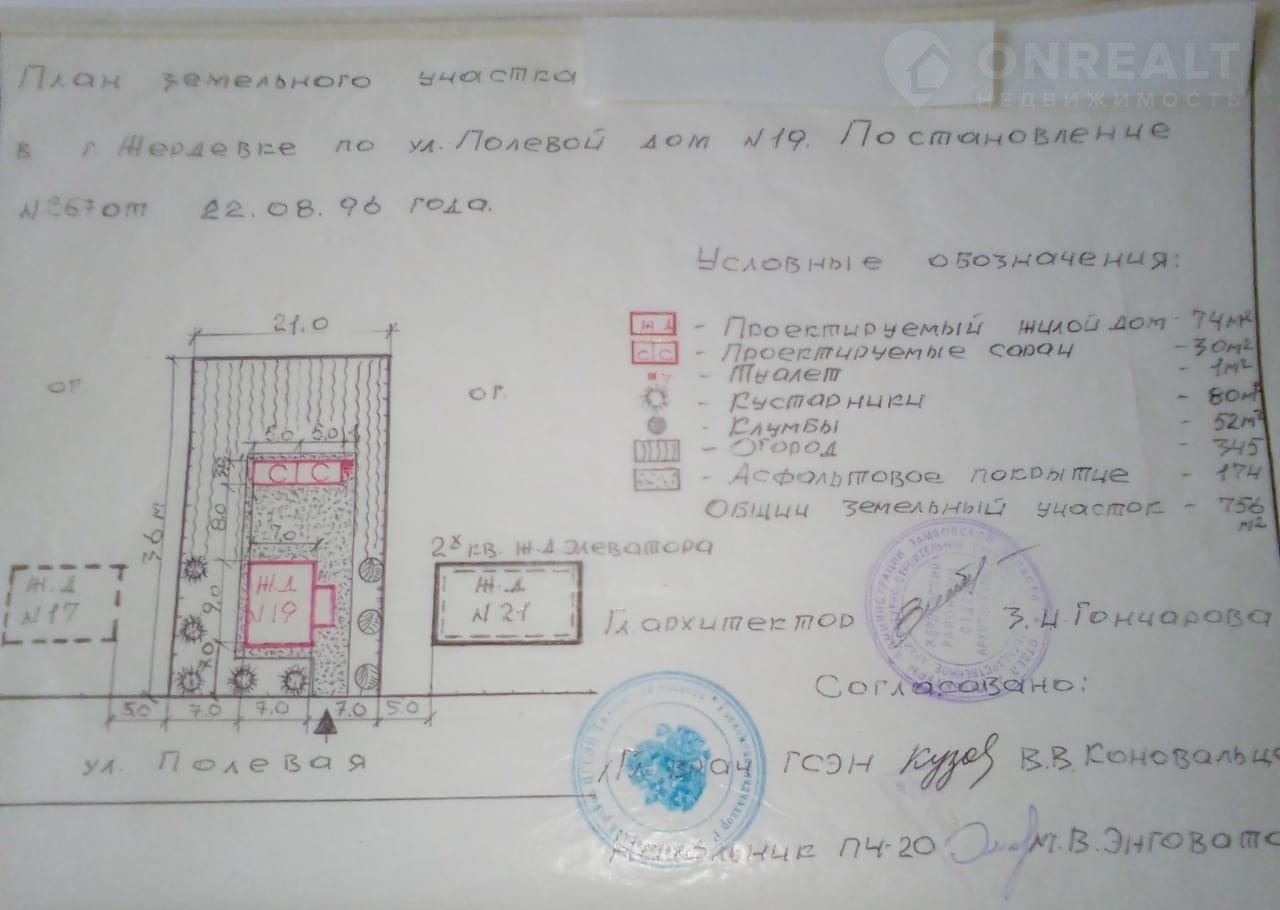 ONREALT
НЕДВИЖИМОСТЬ
План земельного участка
в г. Жердевке по ул. Полевой дом №19. Постановление
№267 от 22.08.96 года.
Условные обозначения:
ЖД - Проектируемый жилой дом - 74 м²
СС - Проектируемые сараи - 30 м²
Т - Туалет - 1 м²
- Кустарники - 80 м²
- Клумбы - 52 м²
- Огород - 345
- Асфальтовое покрытие - 174
Общий земельный участок - 756 м²
21.0
ог.
ог.
5.0 5.0 1
С С
8.0
36 м
7.0
2х кв. ж.д. Элеватора
Ж.Д
№17
9.0
Ж.Д
№19
Ж.Д
№21
5.0 7.0 7.0 7.0 5.0
ул. Полевая
Гл. архитектор З.И. Гончарова
Согласовано:
Гл. врач ГСЭН В.В. Коновальце
Начальник ПЧ-20 М.В. Энговато